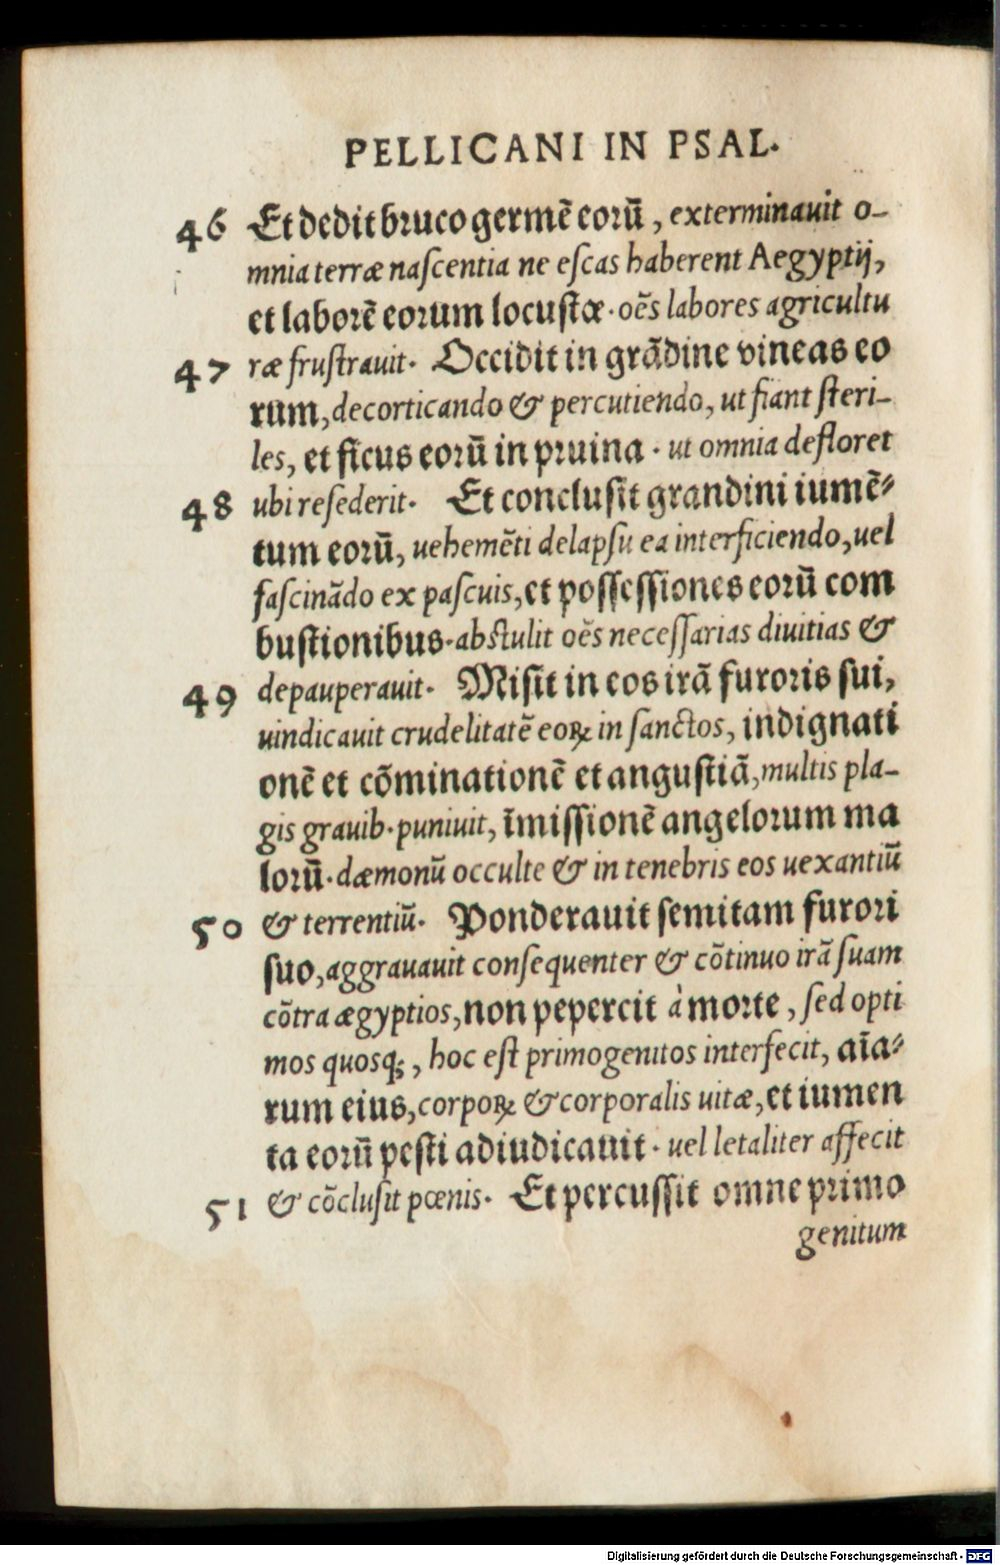 PELLICANI IN PSAL.
46 Et dedit bruco germẽ eorũ, exterminauit o-
mnia terræ naſcentia ne eſcas haberent Aegyptij,
et laborẽ eorum locuſtæ. oẽs labores agricultu
47 ræ fruſtrauit. Occidit in grãdine vineas eo
rum, decorticando & percutiendo, ut fiant ſteri-
les, et ficus eorũ in pruina. ut omnia defloret
48 ubi reſederit. Et concluſit grandini iumẽ⸗
tum eorũ, uehemẽti delapſu ea interficiendo, uel
faſcinãdo ex paſcuis, et poſſeſſiones eorũ com
buſtionibus. abſtulit oẽs neceſſarias diuitias &
49 depauperauit. Miſit in eos irã furoris ſui,
uindicauit crudelitatẽ eoꝝ in ſanctos, indignati
onẽ et cõminationẽ et anguſtiã, multis pla-
gis grauib. puniuit, ĩmiſſionẽ angelorum ma
lorũ. dæmonũ occulte & in tenebris eos uexantiũ
50 & terrentiũ. Ponderauit ſemitam furori
ſuo, aggrauauit conſequenter & cõtinuo irã ſuam
cõtra ægyptios, non pepercit à morte, ſed opti
mos quosq;, hoc eſt primogenitos interfecit, aĩa⸗
rum eius, corpoꝝ & corporalis uitæ, et iumen
ta eorũ peſti adiudicauit. uel letaliter affecit
51 & cõcluſit pœnis. Et percuſſit omne primo
genitum
Digitalisierung gefördert durch die Deutsche Forschungsgemeinschaft - DFG